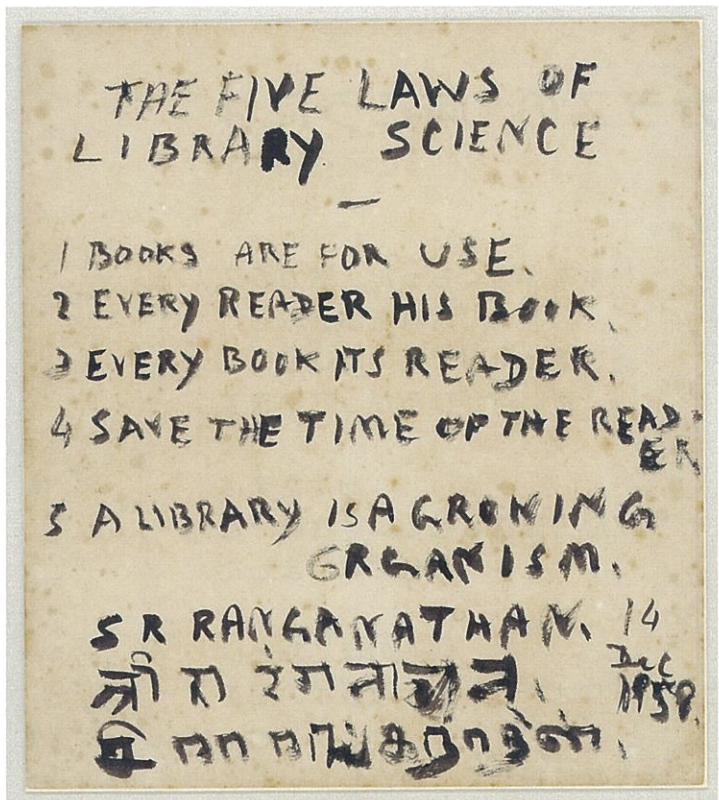 THE FIVE LAWS OF
LIBRARY SCIENCE
—
1 BOOKS ARE FOR USE.
2 EVERY READER HIS BOOK.
3 EVERY BOOK ITS READER.
4 SAVE THE TIME OF THE READ-
ER
5 A LIBRARY IS A GROWING
ORGANISM.
S R RANGANATHAN. 14
Dec
1958.
श्री रा रंगनाथन.